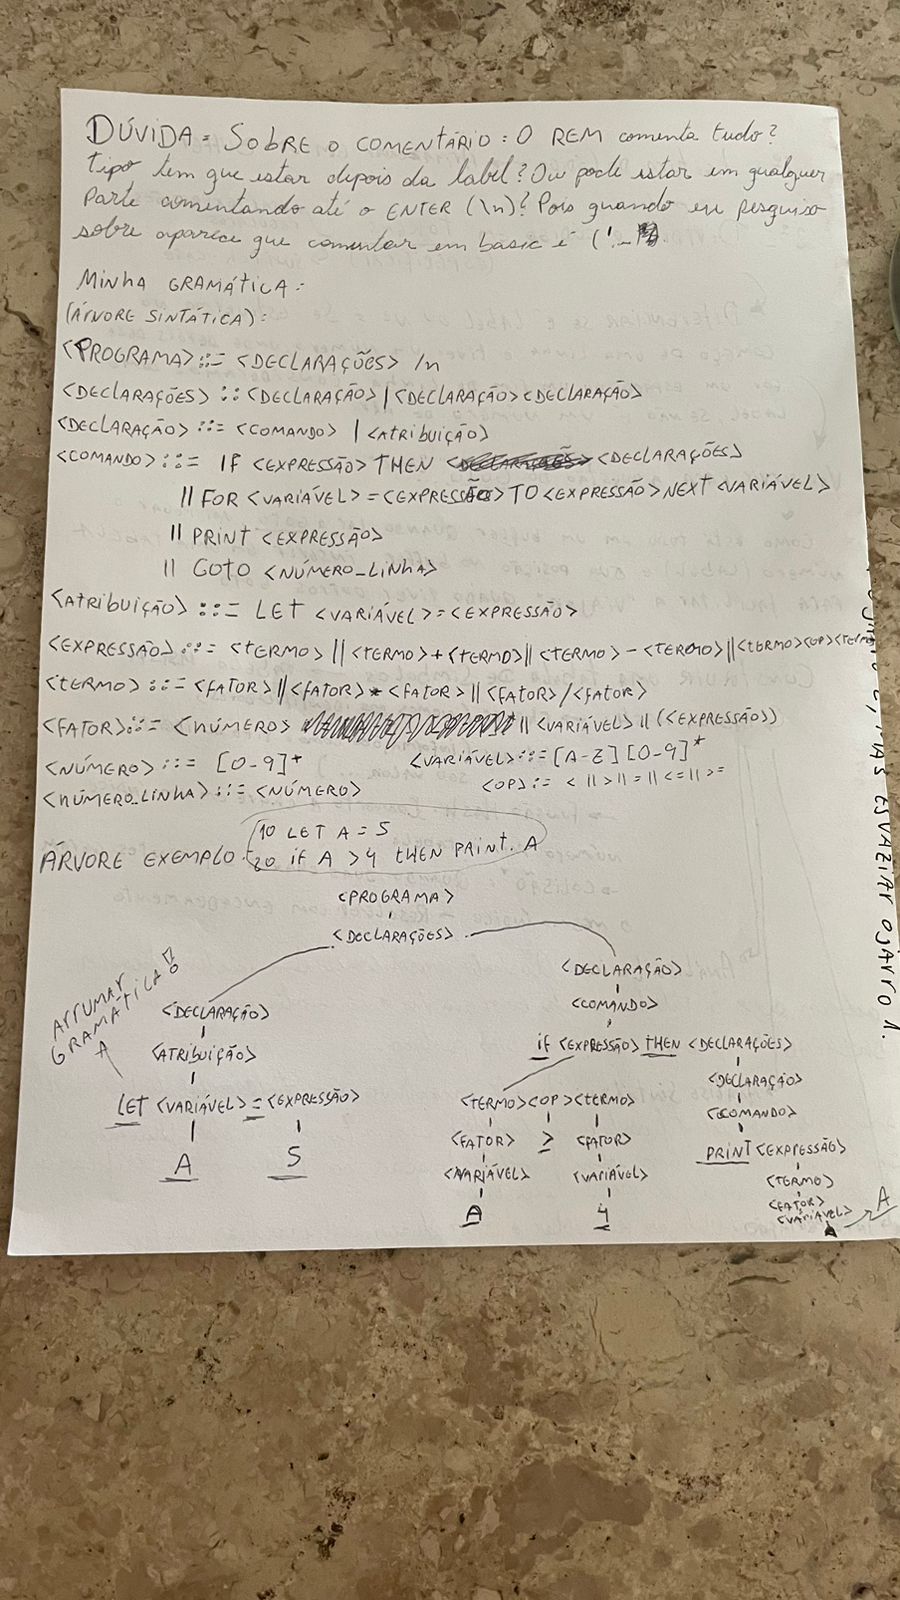 DÚVIDA = SOBRE O COMENTÁRIO: O REM comenta tudo?
tipo tem que estar depois da label? Ou pode estar em qualquer
parte comentando até o ENTER (\n)? Pois quando eu pesquiso
sobre aparece que comentar em basic é ('_
MINHA GRAMÁTICA:
(ÁRVORE SINTÁTICA):
<PROGRAMA> ::= <DECLARAÇÕES> /n
<DECLARAÇÕES> :: <DECLARAÇÃO> | <DECLARAÇÃO> <DECLARAÇÃO>
<DECLARAÇÃO> ::= <COMANDO> | <ATRIBUIÇÃO>
<COMANDO> ::= IF <EXPRESSÃO> THEN <DECLARAÇÕES>
|| FOR <VARIÁVEL> = <EXPRESSÃO> TO <EXPRESSÃO> NEXT <VARIÁVEL>
|| PRINT <EXPRESSÃO>
|| GOTO <NÚMERO_LINHA>
<ATRIBUIÇÃO> ::= LET <VARIÁVEL> = <EXPRESSÃO>
<EXPRESSÃO> ::= <TERMO> || <TERMO> + <TERMO> || <TERMO> - <TERMO> || <TERMO> <OP> <TERMO
<TERMO> ::= <FATOR> || <FATOR> * <FATOR> || <FATOR> / <FATOR>
<FATOR> ::= <NÚMERO> || <VARIÁVEL> || (<EXPRESSÃO>)
<NÚMERO> ::= [0-9]+ <VARIÁVEL> ::= [A-Z][0-9]*
<NÚMERO_LINHA> ::= <NÚMERO> <OP> := < || > || = || <= || >=
10 LET A = 5
ÁRVORE EXEMPLO: 20 if A > 4 THEN PRINT A
<PROGRAMA>
<DECLARAÇÕES>
<DECLARAÇÃO>
<DECLARAÇÃO> <COMANDO>
ARRUMAR
GRAMÁTICA!
A
<ATRIBUIÇÃO> if <EXPRESSÃO> THEN <DECLARAÇÕES>
<DECLARAÇÃO>
LET <VARIÁVEL> = <EXPRESSÃO> <TERMO> <OP> <TERMO> <COMANDO>
<FATOR> > <FATOR> PRINT <EXPRESSÃO>
A 5 <VARIÁVEL> <VARIÁVEL> <TERMO>
<FATOR>
<VARIÁVEL> A
A 4 A
MAS ESVAZIAR O JARRO 1.